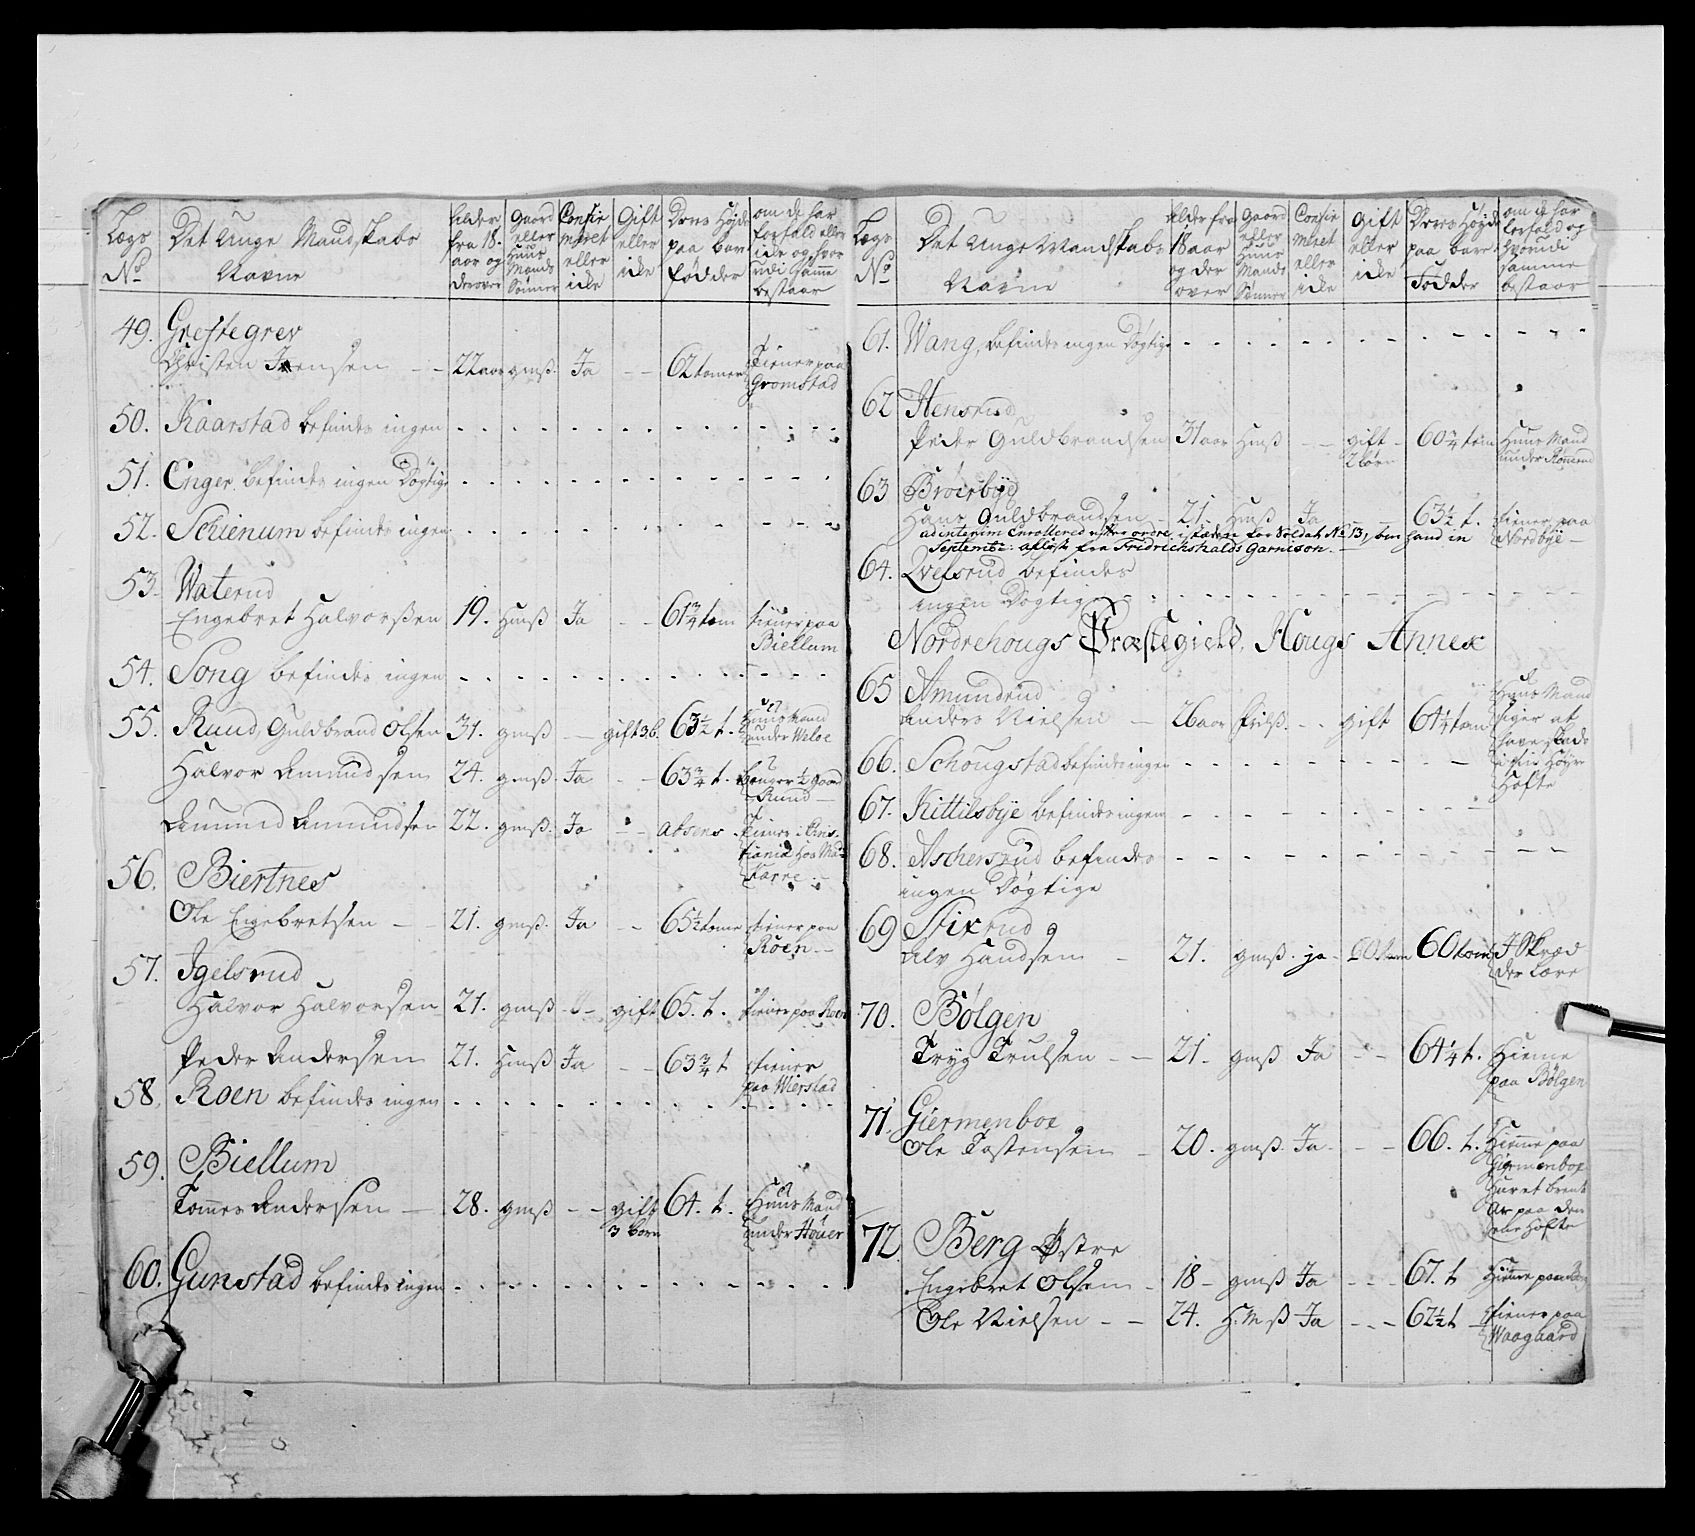 Lægs No | Det Unge Mandskabs Navne | Alder fra 18. aar og derover | Gaard eller Huus Mands Sønner | Confirmeret eller icke | Gift eller icke | Deres Højde paa bare fødder | om de har forfald eller icke og hvorudi samme bestaar
49. Grefsegrev
Christen Jensen - - 22 aar gmß. Ja - - 62 tomer Tiener paa Gromstad
50. Kaarstad befindes ingen
51. Enger befindes ingen Døgtige
52. Schienum befindes ingen
53. Waterud
Engebret Halvorßen 19. Hmß Ja - - 61 3/4 tom tiener paa Biellum
54. Song befindes ingen
55. Ruud, Guldbrand Olsen 31. gmß - gift 3 b. 63 1/2 t. Huus Mand under Weloe
Halvor Amundsen 24. gmß. Ja - - 63 3/4 t. bruger 1/2 gaard Ruud
Amund Amundsen 22. gmß. Ja - - absens. Tiener i Christiania hos Md: Karre
56. Biertnes
Ole Engebretsen - - 21. gmß. Ja - - 65 1/2 tome tiener paa Roen
57. Igelsrud
Halvor Halvorsen 21. gmß - - gift 65. t. tiener paa Roen
Peder Andersen 21. Hmß Ja - - 63 3/4 t tiener paa Wierstad
58. Roen befindes ingen
59. Biellum
Tomes Andersen - 28. gmß - - gift 3 born 64. t. Huus Mand under Høuer
60. Gunstad befindes ingen
Lægs No | Det Unge Mandskabs Navne | Alder fra 18 aar og der over | Gaard eller Huus Mands Sønner | Confirmeret eller icke | Gift eller icke | Deres Højde paa bare Fødder | om de har forfald og hvorudi samme bestaar
61. Wang, befindes ingen Døgtige
62 Hensrud
Peder Guldbrandsen 31 aar Hmß - - gift 2 børn 60 3/4 tom Huus Mand under Rømerud
63 Broerbye
Hans Guldbrandsen - 21. Hmß Ja - - 63 1/2 t. tiener paa Nordbye
ad interim Enrolleret efter ordre i stæden for Soldat No 13, som hand in
Septembr: afløste fra Fridrichshalds Garnison.
64. Qvelsrud befindes
ingen Døgtige
Nordrehougs Præstegield. Hougs Annex
65 Amundrud
Anders Nielsen - 26 aar Frilß. - - gift 64 1/4 tom Huus Mand siger at have skade i sin Høyre Hofte
66. Schougstad befindes ingen
67. Kittilsbye befindes ingen
68. Aschersrud befindes
ingen Døgtige
69 Stixrud
Alv Handsen - 21. gmß. ja - 60 tom 60 tom I Skræder Lære
70. Bølgen
Tryg Trulsen - - 21. gmß Ja - - 64 1/4 t. Hieme paa Bølgen
71. Giermenboe
Ole Tostensen - 20. gmß. Ja - - 66. t. Hieme paa Giermenboe Har et brent Ar paa den ene Hofte
72. Berg Østre
Engebret Olsen - 18 - gmß Ja - - - 67. t Hieme paa Berg
Ole Nielsen - - 24. H.M ß Ja - - - 62 1/2 t tiener paa Waagaard